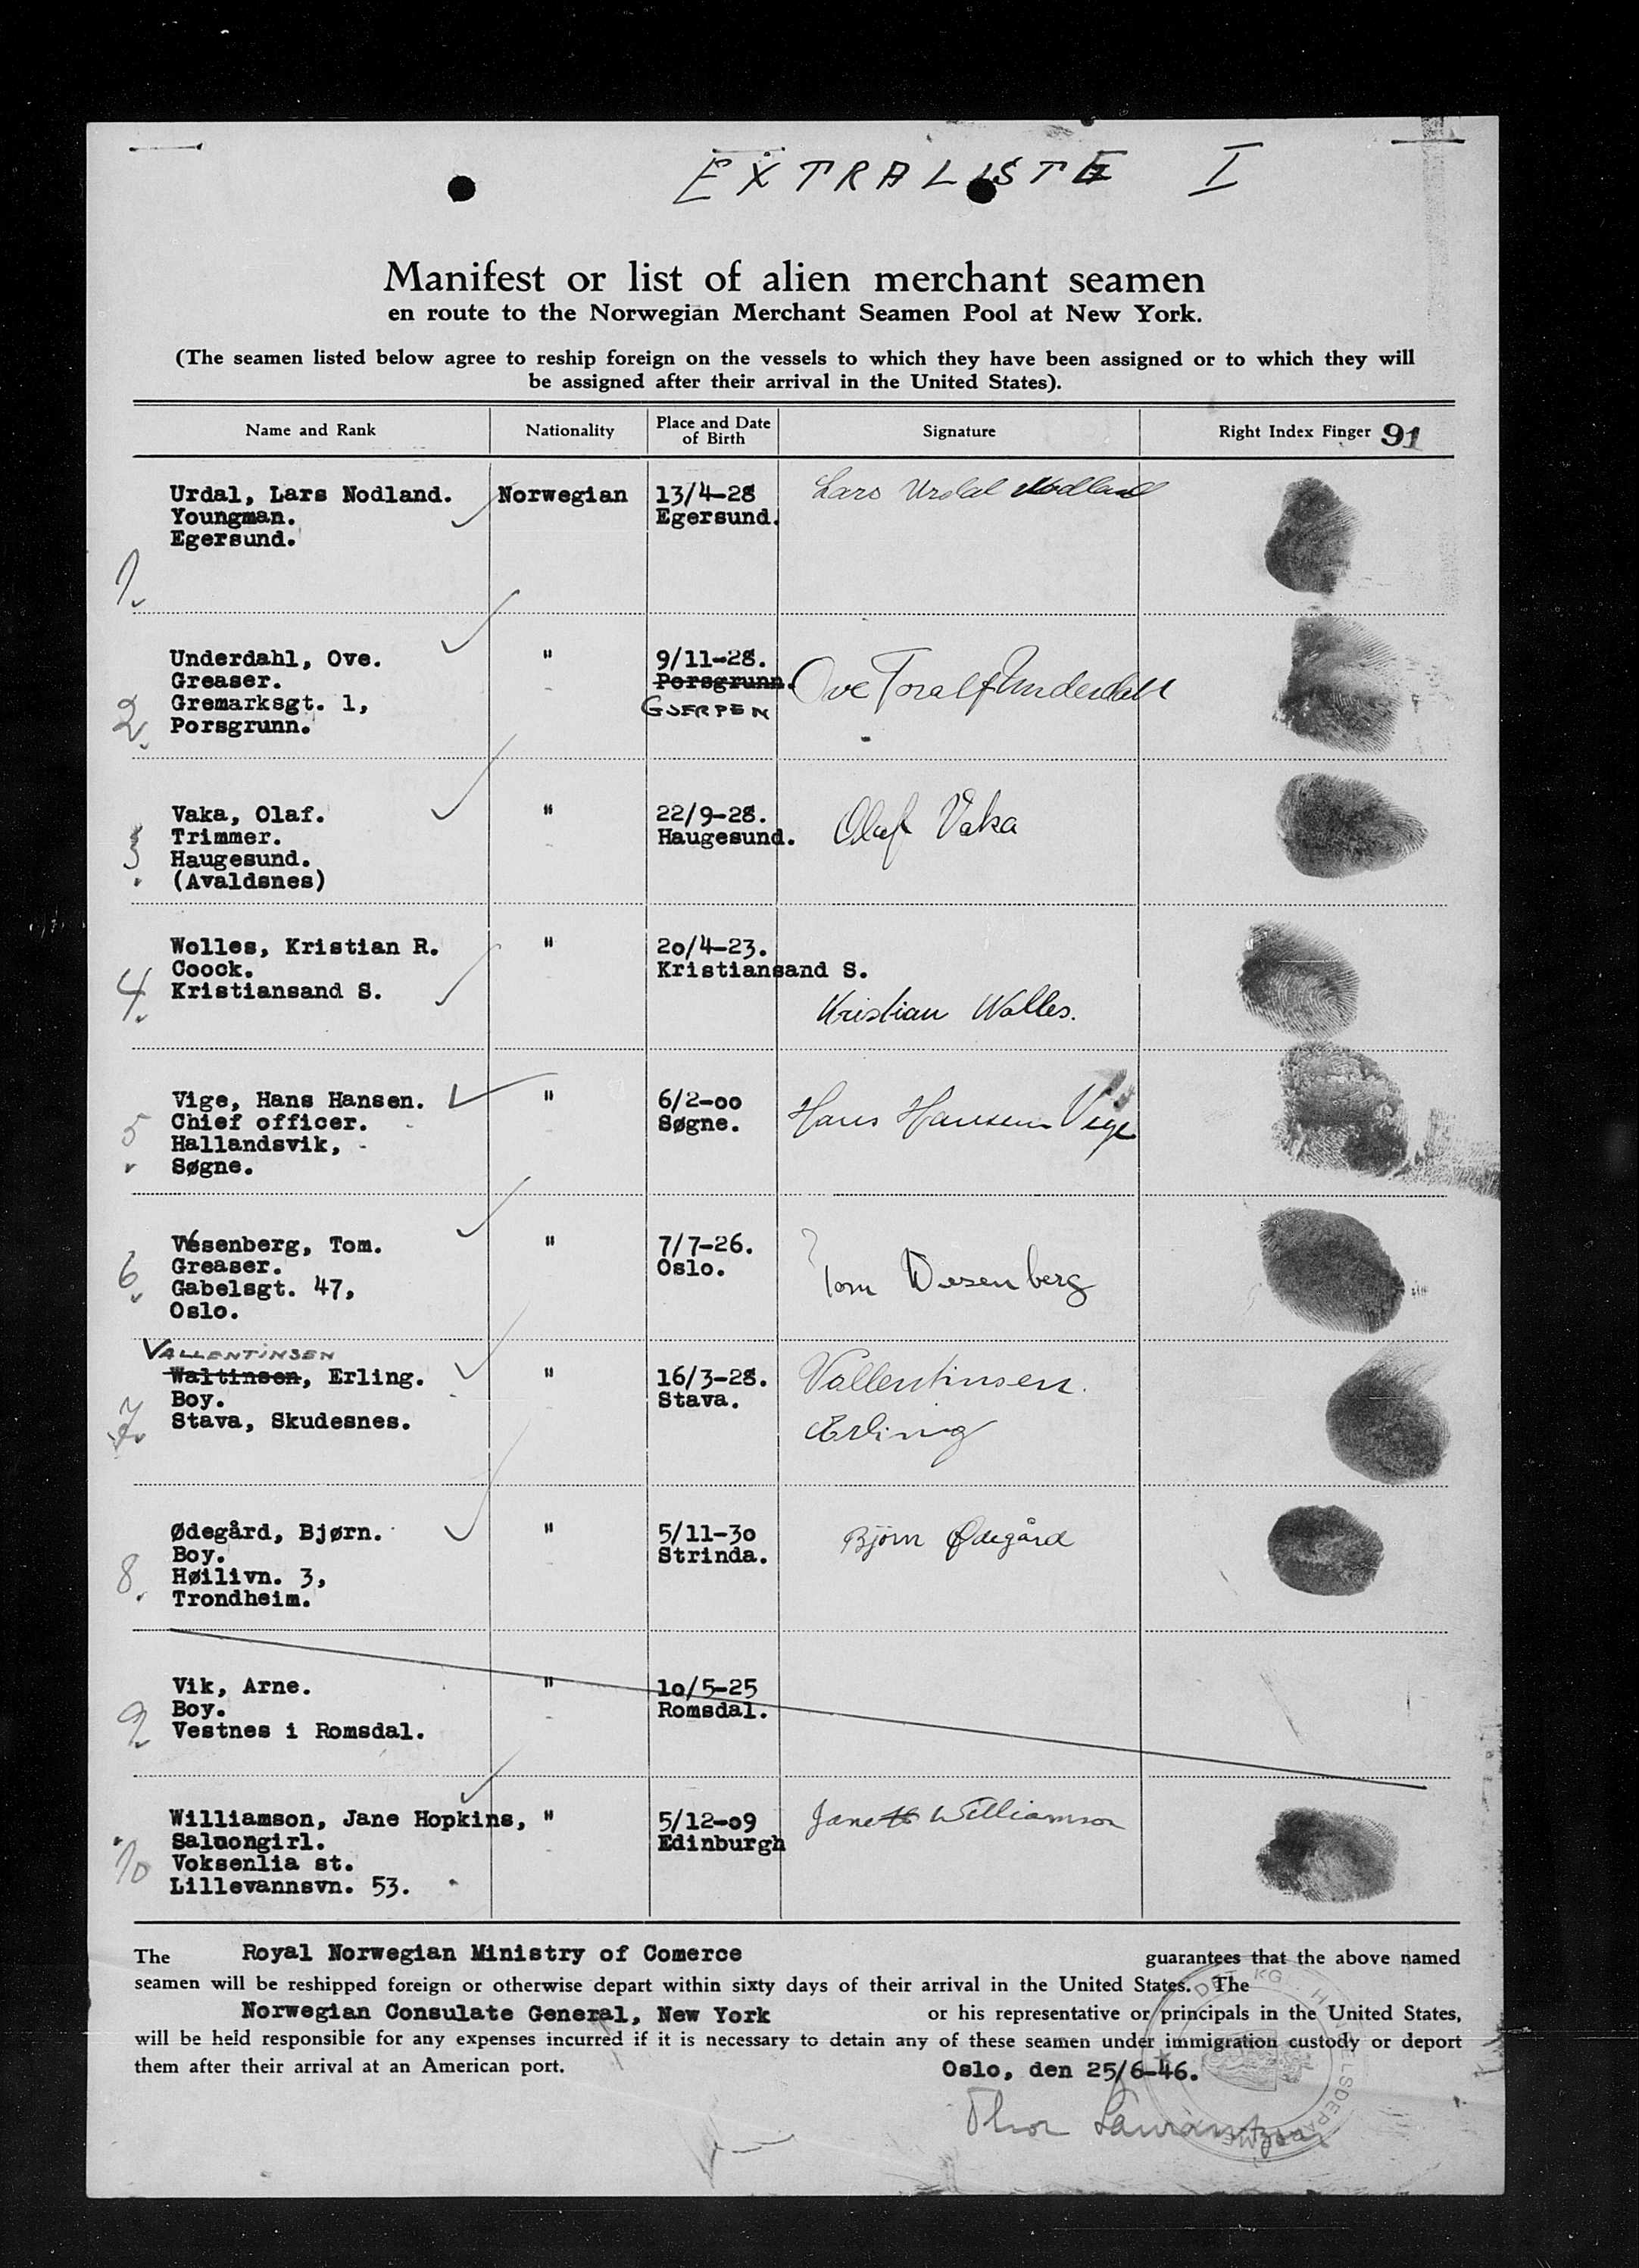 EXTRALISTE I
Manifest or list of alien merchant seamen
en route to the Norwegian Merchant Seamen Pool at New York.
(The seamen listed below agree to reship foreign on the vessels to which they have been assigned or to which they will
be assigned after their arrival in the United States).
Name and Rank Nationality Place and Date of Birth Signature Right Index Finger 91
Urdal, Lars Nodland. Norwegian 13/4-28 Lars Urdal Nodland
Youngman. Egersund.
Egersund.
1.
Underdahl, Ove. " 9/11-28.
Greaser. Porsgrunn. Ove Toralf Underdahl
Gremarksgt. 1, GJERPEN
2. Porsgrunn.
Vaka, Olaf. " 22/9-28. Olaf Vaka
Trimmer. Haugesund.
3. Haugesund.
(Avaldsnes)
Wolles, Kristian R. " 20/4-23.
Coock. Kristiansand S.
4. Kristiansand S. Kristian Wolles.
Vige, Hans Hansen. " 6/2-00 Hans Hansen Vige
5. Chief officer. Søgne.
Hallandsvik,
Søgne.
Wesenberg, Tom. " 7/7-26.
Greaser. Oslo.
6. Gabelsgt. 47, Tom Wesenberg
Oslo.
VALLENTINSEN
Waltinsen, Erling. " 16/3-28. Vallentinsen.
Boy. Stava.
7. Stava, Skudesnes. Erling
Ødegård, Bjørn. " 5/11-30 Bjørn Ødegård
Boy. Strinda.
8. Høilivn. 3,
Trondheim.
Vik, Arne. " 10/5-25
Boy. Romsdal.
9. Vestnes i Romsdal.
Williamson, Jane Hopkins, " 5/12-09 Jane H Williamson
Saluongirl. Edinburgh
10 Voksenlia st.
Lillevannsvn. 53.
The Royal Norwegian Ministry of Comerce guarantees that the above named
seamen will be reshipped foreign or otherwise depart within sixty days of their arrival in the United States. The
Norwegian Consulate General, New York or his representative or principals in the United States,
will be held responsible for any expenses incurred if it is necessary to detain any of these seamen under immigration custody or deport
them after their arrival at an American port. Oslo, den 25/6-46.
Thor
DET KG